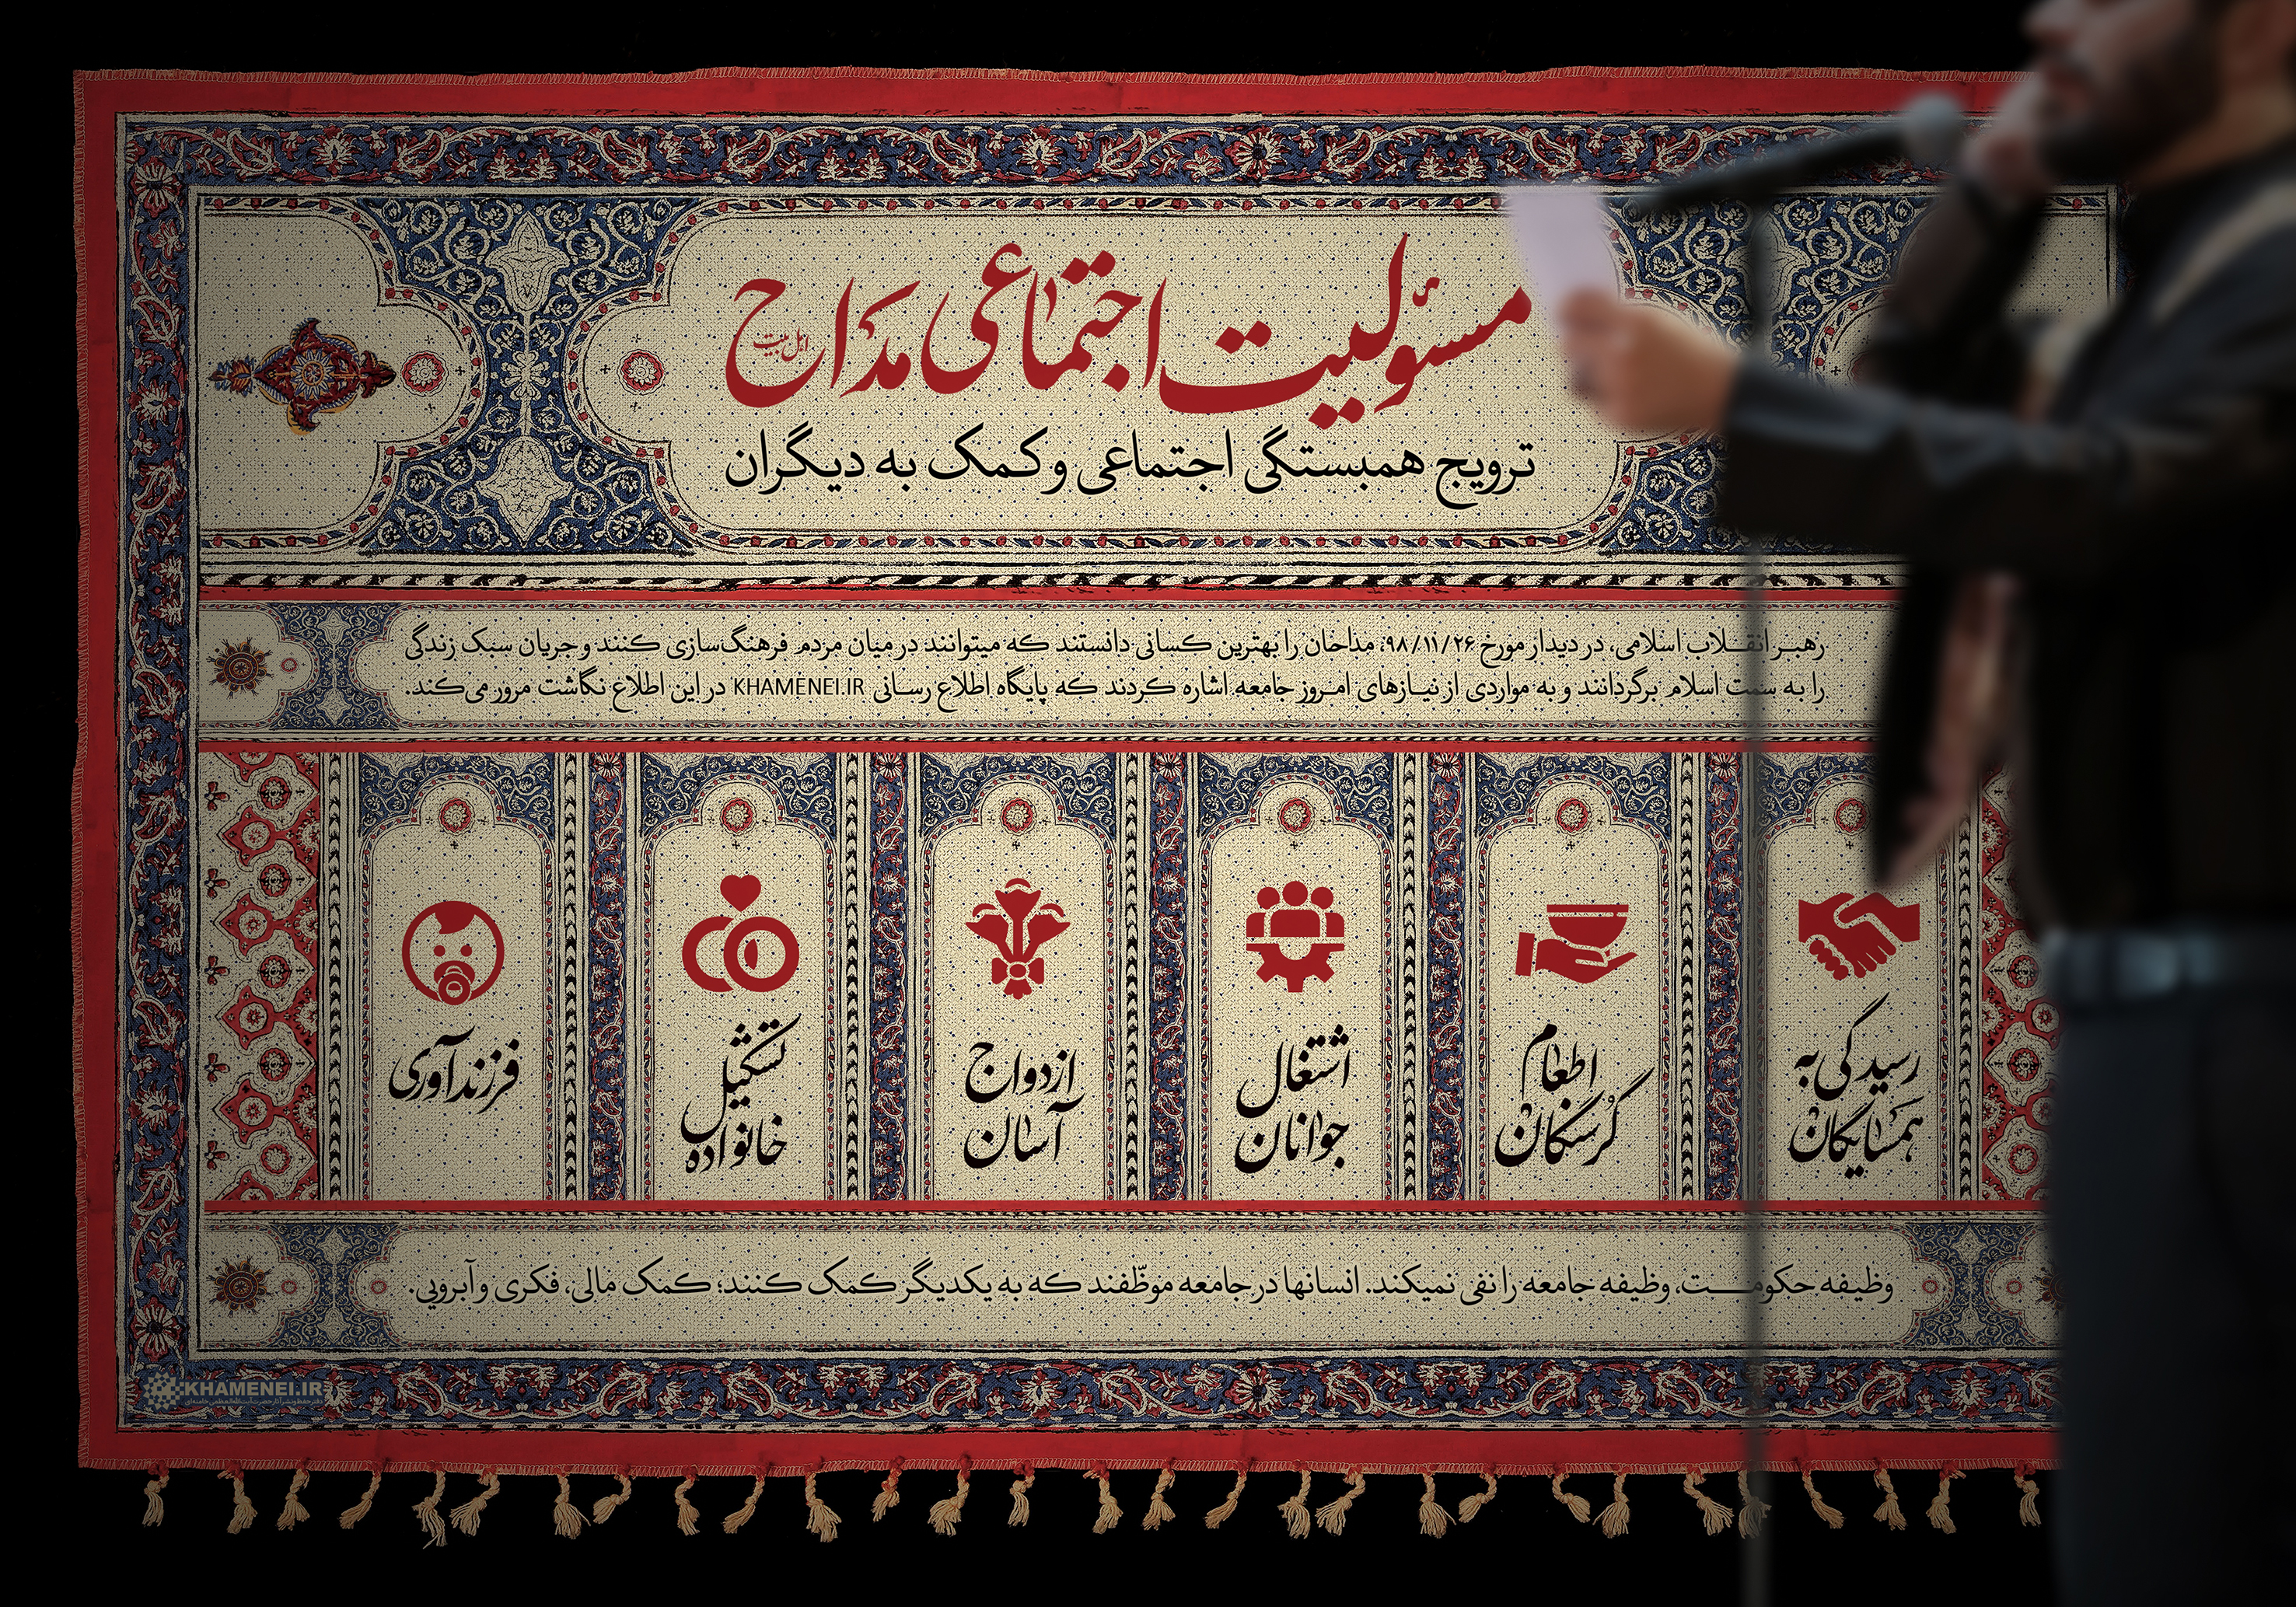 مسئولیت اجتماعی مداح
اهل بیت
ترویج همبستگی اجتماعی و کمک به دیگران
رهبر انقلاب اسلامی، در دیدار مورخ ۹۸/۱۱/۲۶، مداحان را بهترین کسانی دانستند که میتوانند در میان مردم فرهنگ‌سازی کنند و جریان سبک زندگی
را به سمت اسلام برگردانند و به مواردی از نیازهای امروز جامعه اشاره کردند که پایگاه اطلاع رسانی KHAMENEI.IR در این اطلاع نگاشت مرور می‌کند.
رسیدگی به
همسایگان
اطعام
گرسنگان
اشتغال
جوانان
ازدواج
آسان
تشکیل
خانواده
فرزندآوری
وظیفه حکومت، وظیفه جامعه را نفی نمیکند. انسانها در جامعه موظّفند که به یکدیگر کمک کنند؛ کمک مالی، فکری و آبرویی.
KHAMENEI.IR